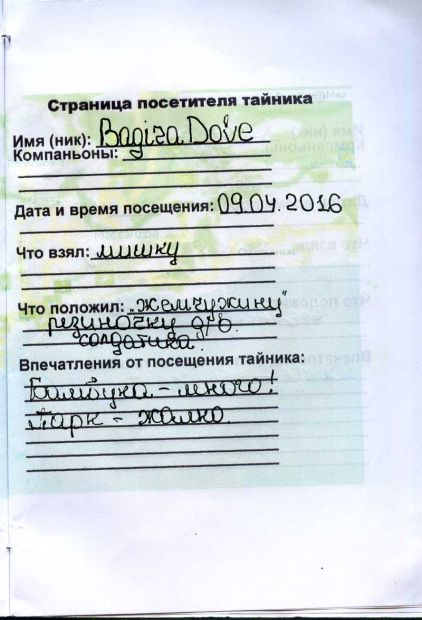 Страница посетителя тайника
Имя (ник): Bagira Dove
Компаньоны:
Дата и время посещения: 09.04.2016
Что взял: мишку
Что положил: „жемчужину"
резиночку д/в.
солдатика.
Впечатления от посещения тайника:
Бамбука - много!
Парк - жалко.